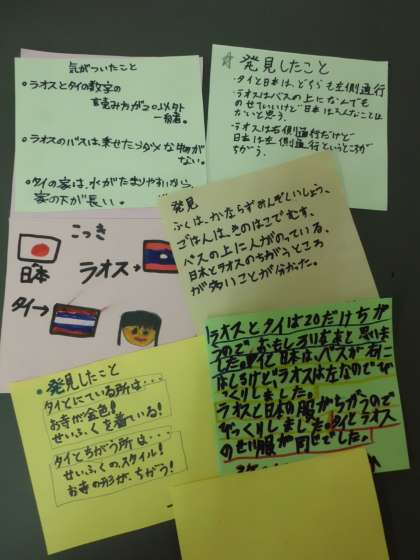 気がついたこと
•ラオスとタイの数字の
読み方が20以外
一緒。
•ラオスのバスは乗せたらダメな物が
ない。
•タイの家は、水がたまりやすいから、
家の下が長い。
発見したこと
・タイと日本は、どちらも左側通行
・ラオスはバスの上になんでも
のせていいけど日本はそんなことは
ないと思う。
・ラオスは右側通行だけど
日本は左側通行というところが
ちがう。
発見
ふくは、かならずめんぜいしょう、
ごはん、きものはこでむす、
バスの上に人がのっている、
日本とラオスのちがうところ
が多いことが分かった。
こっき
日本
ラオス→
タイ→
ラオスとタイは20だけちが
うので、おもしろいなと思いま
した。タイと日本は、バスが右に
はしるけど、ラオスは左なのでび
っくりしました。
ラオスと日本の服がちがうので
びっくりしました。タイとラオス
のせい服が同じでした。
•発見したこと
タイとにている所は・・・
お寺が金色!
せいふくを着ている!
タイとちがう所は・・・
せいふくの、スタイル!
お寺の形が、ちがう!